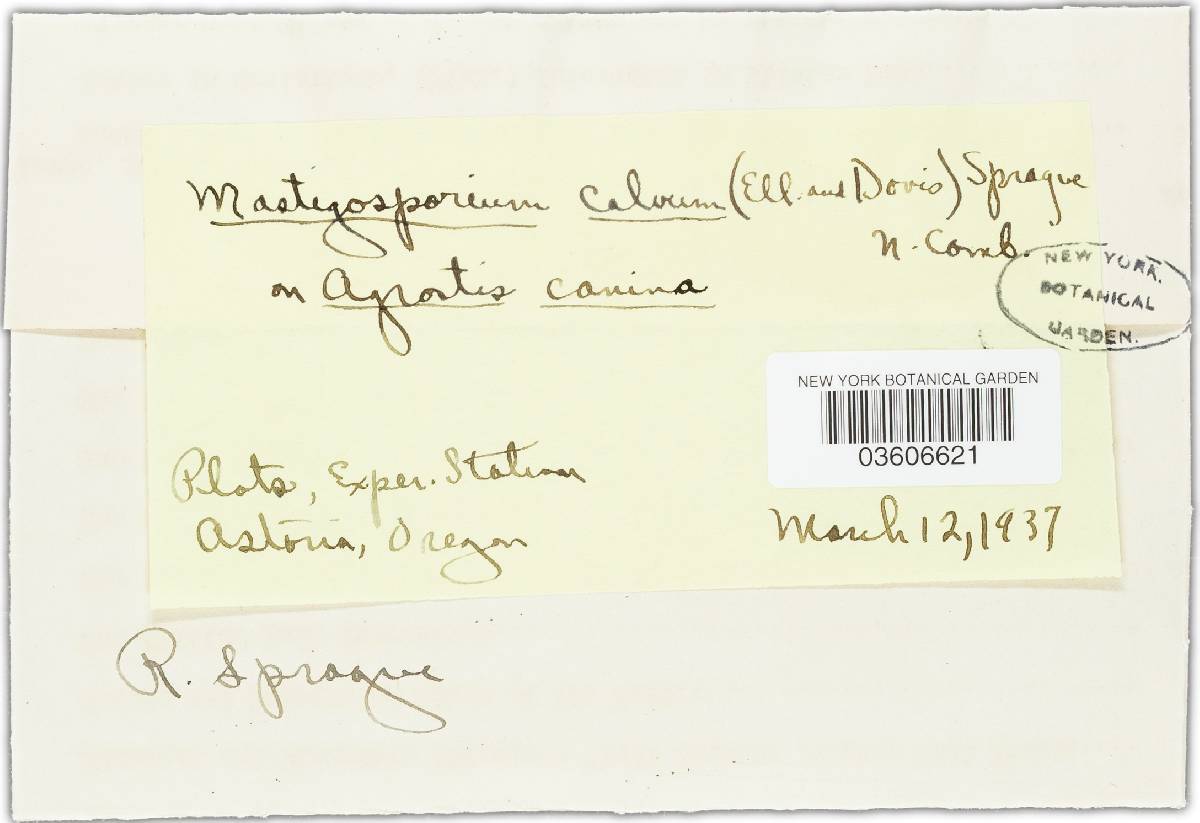 Mastigosporium calvum (Ell. and Davis) Sprague
n. Comb.
on Agrostis canina
NEW YORK
BOTANICAL
GARDEN.
NEW YORK BOTANICAL GARDEN
03606621
Plots, Exper. Station
Astoria, Oregon
March 12, 1937
R. Sprague